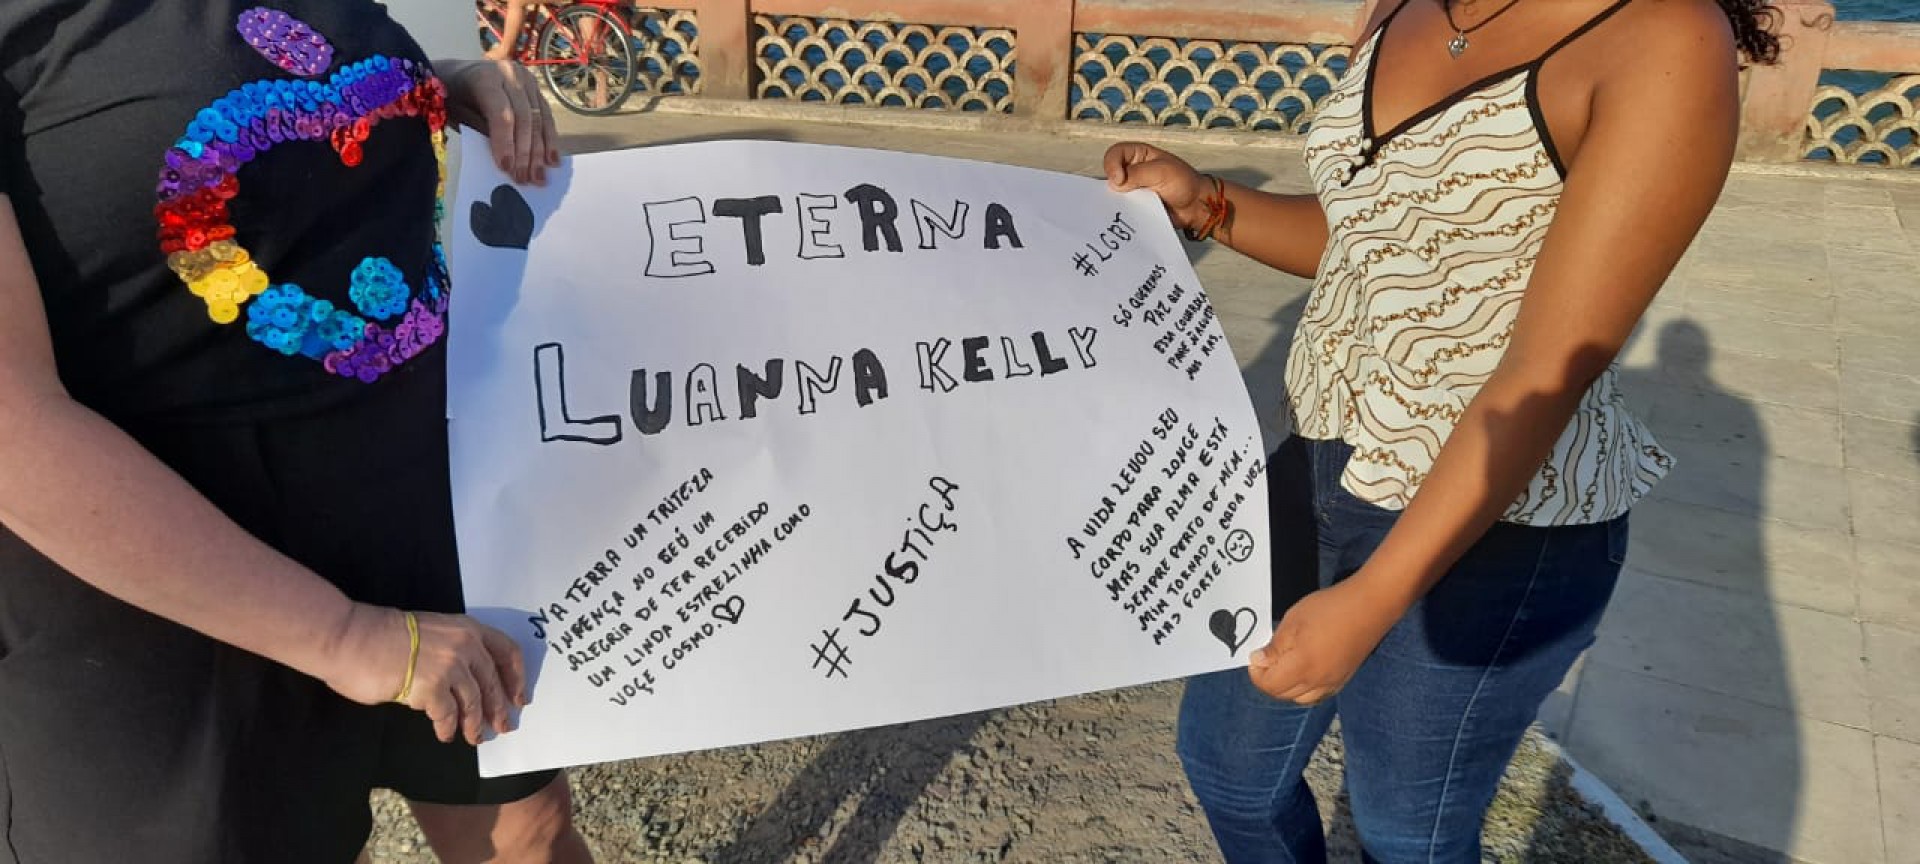 ETERNA
LUANNA KELLY
#LGBT
SÓ QUEREMOS
PAZ QUE
ESSA COVARDIA
PARE
NA TERRA UM TRITEZA
INFENÇA NO SEÓ UM
ALEGRIA DE TER RECEBIDO
UM LINDA ESTRELINHA COMO
VOÇE COSMO.
#JUSTIÇA
A VIDA LEVOU SEU
CORPO PARA LONGE
MAS SUA ALMA ESTÁ
SEMPRE PERTO DE MIM...
MIM TORNADO CADA VEZ
MAS FORTE!